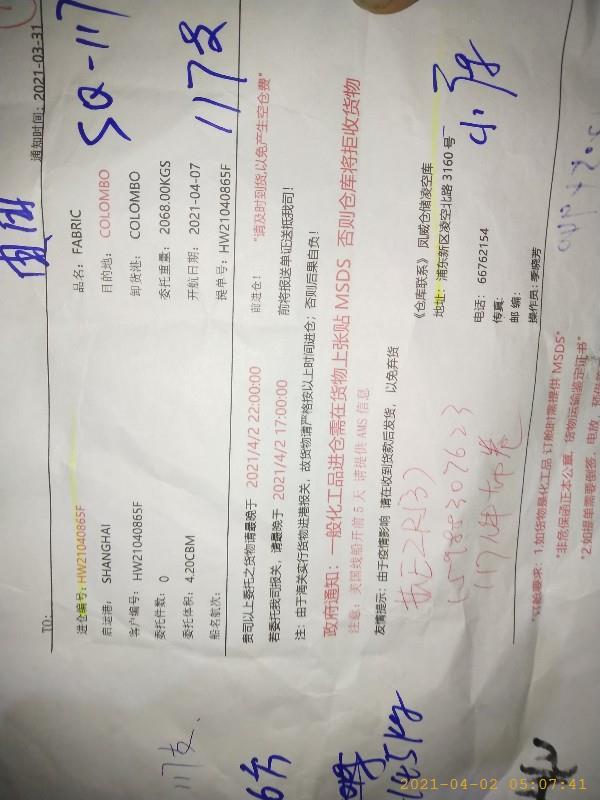 通知时间: 2021-03-31
TO:
进仓编号: HW21040865F
品名: FABRIC
启运港: SHANGHAI
目的地: COLOMBO
客户编号: HW21040865F
卸货港: COLOMBO
委托件数: 0
委托重量: 2068.00KGS
委托体积: 4.20CBM
开航日期: 2021-04-07
船名航次:
提单号: HW21040865F
SQ-117
117支
贵司以上委托之货物请最晚于 2021/4/2 22:00:00 前进仓! "请及时到货,以免产生空仓费"
若委托我司报关, 请最晚于 2021/4/2 17:00:00 前将报送单证送抵我司!
注: 由于海关实行货物进港报关, 故货物请严格按以上时间进仓; 否则后果自负!
政府通知: 一般化工品进仓需在货物上张贴 MSDS 否则仓库将拒收货物
注意: 美国线船开前 5 天 请提供 AMS 信息
友情提示: 由于疫情影响 请在收到货款后发货, 以免弃货
《仓库联系》 凤威仓储凌空库
地址: 浦东新区凌空北路 3160 号
电话: 66762154
传真:
邮 编:
操作员: 季晓芳
15988307623
117件布卷
订舱要求: 1.如货物是化工品 订舱时需提供 MSDS*
"非危保函正本公章, 货物运输鉴定证书"
*2.如提单需要倒签, 电放, 预借
645kg
2021-04-02 05:07:41